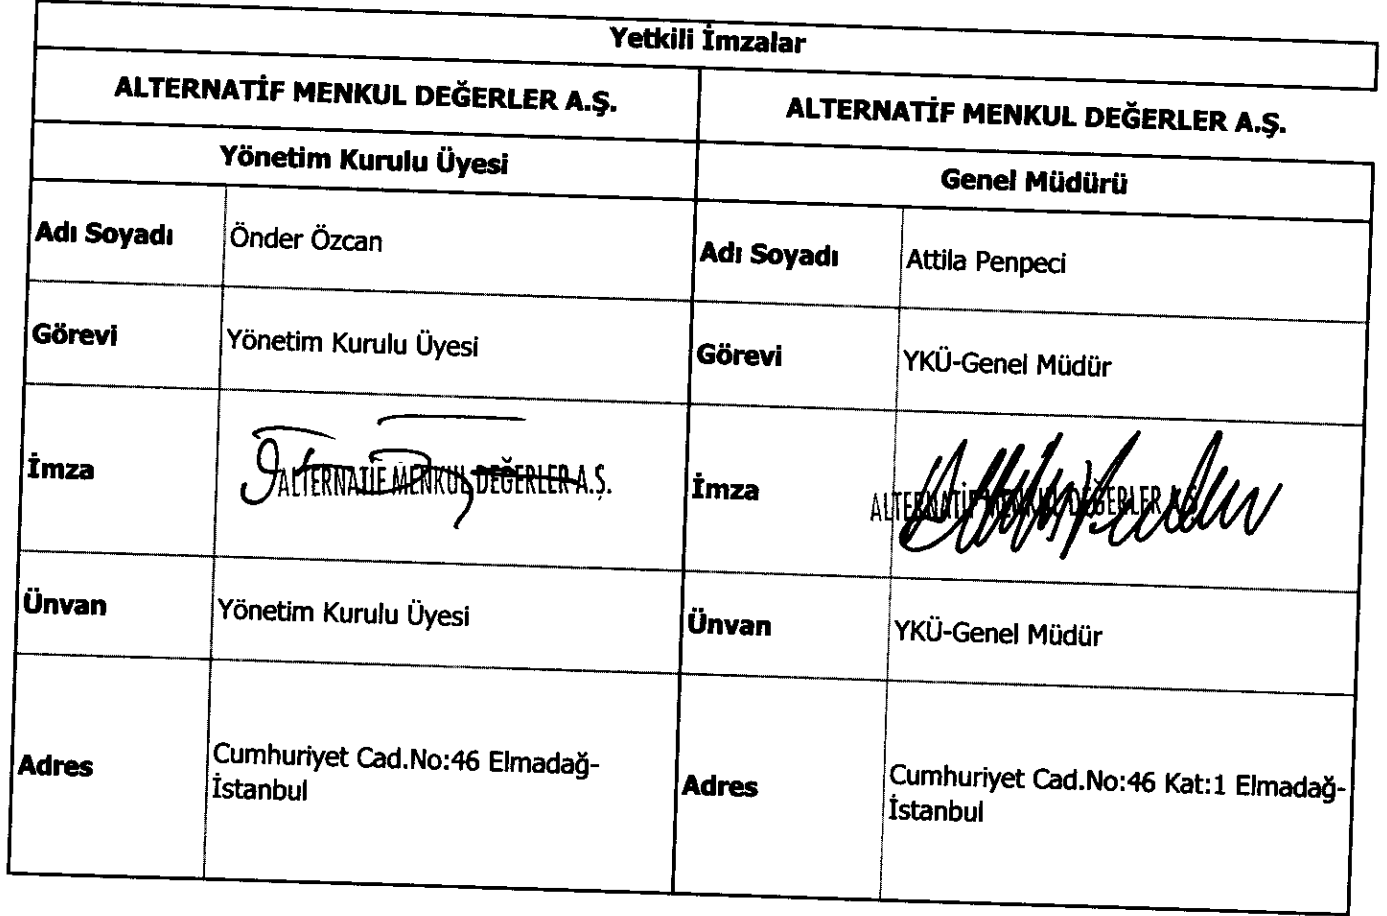 Yetkili İmzalar
ALTERNATİF MENKUL DEĞERLER A.Ş.
ALTERNATİF MENKUL DEĞERLER A.Ş.
Yönetim Kurulu Üyesi
Genel Müdürü
Adı Soyadı
Önder Özcan
Adı Soyadı
Attila Penpeci
Görevi
Yönetim Kurulu Üyesi
Görevi
YKÜ-Genel Müdür
İmza
ALTERNATİF MENKUL DEĞERLER A.Ş.
İmza
ALTERNATİF MENKUL DEĞERLER A.Ş.
Ünvan
Yönetim Kurulu Üyesi
Ünvan
YKÜ-Genel Müdür
Adres
Cumhuriyet Cad.No:46 Elmadağ-
İstanbul
Adres
Cumhuriyet Cad.No:46 Kat:1 Elmadağ-
İstanbul